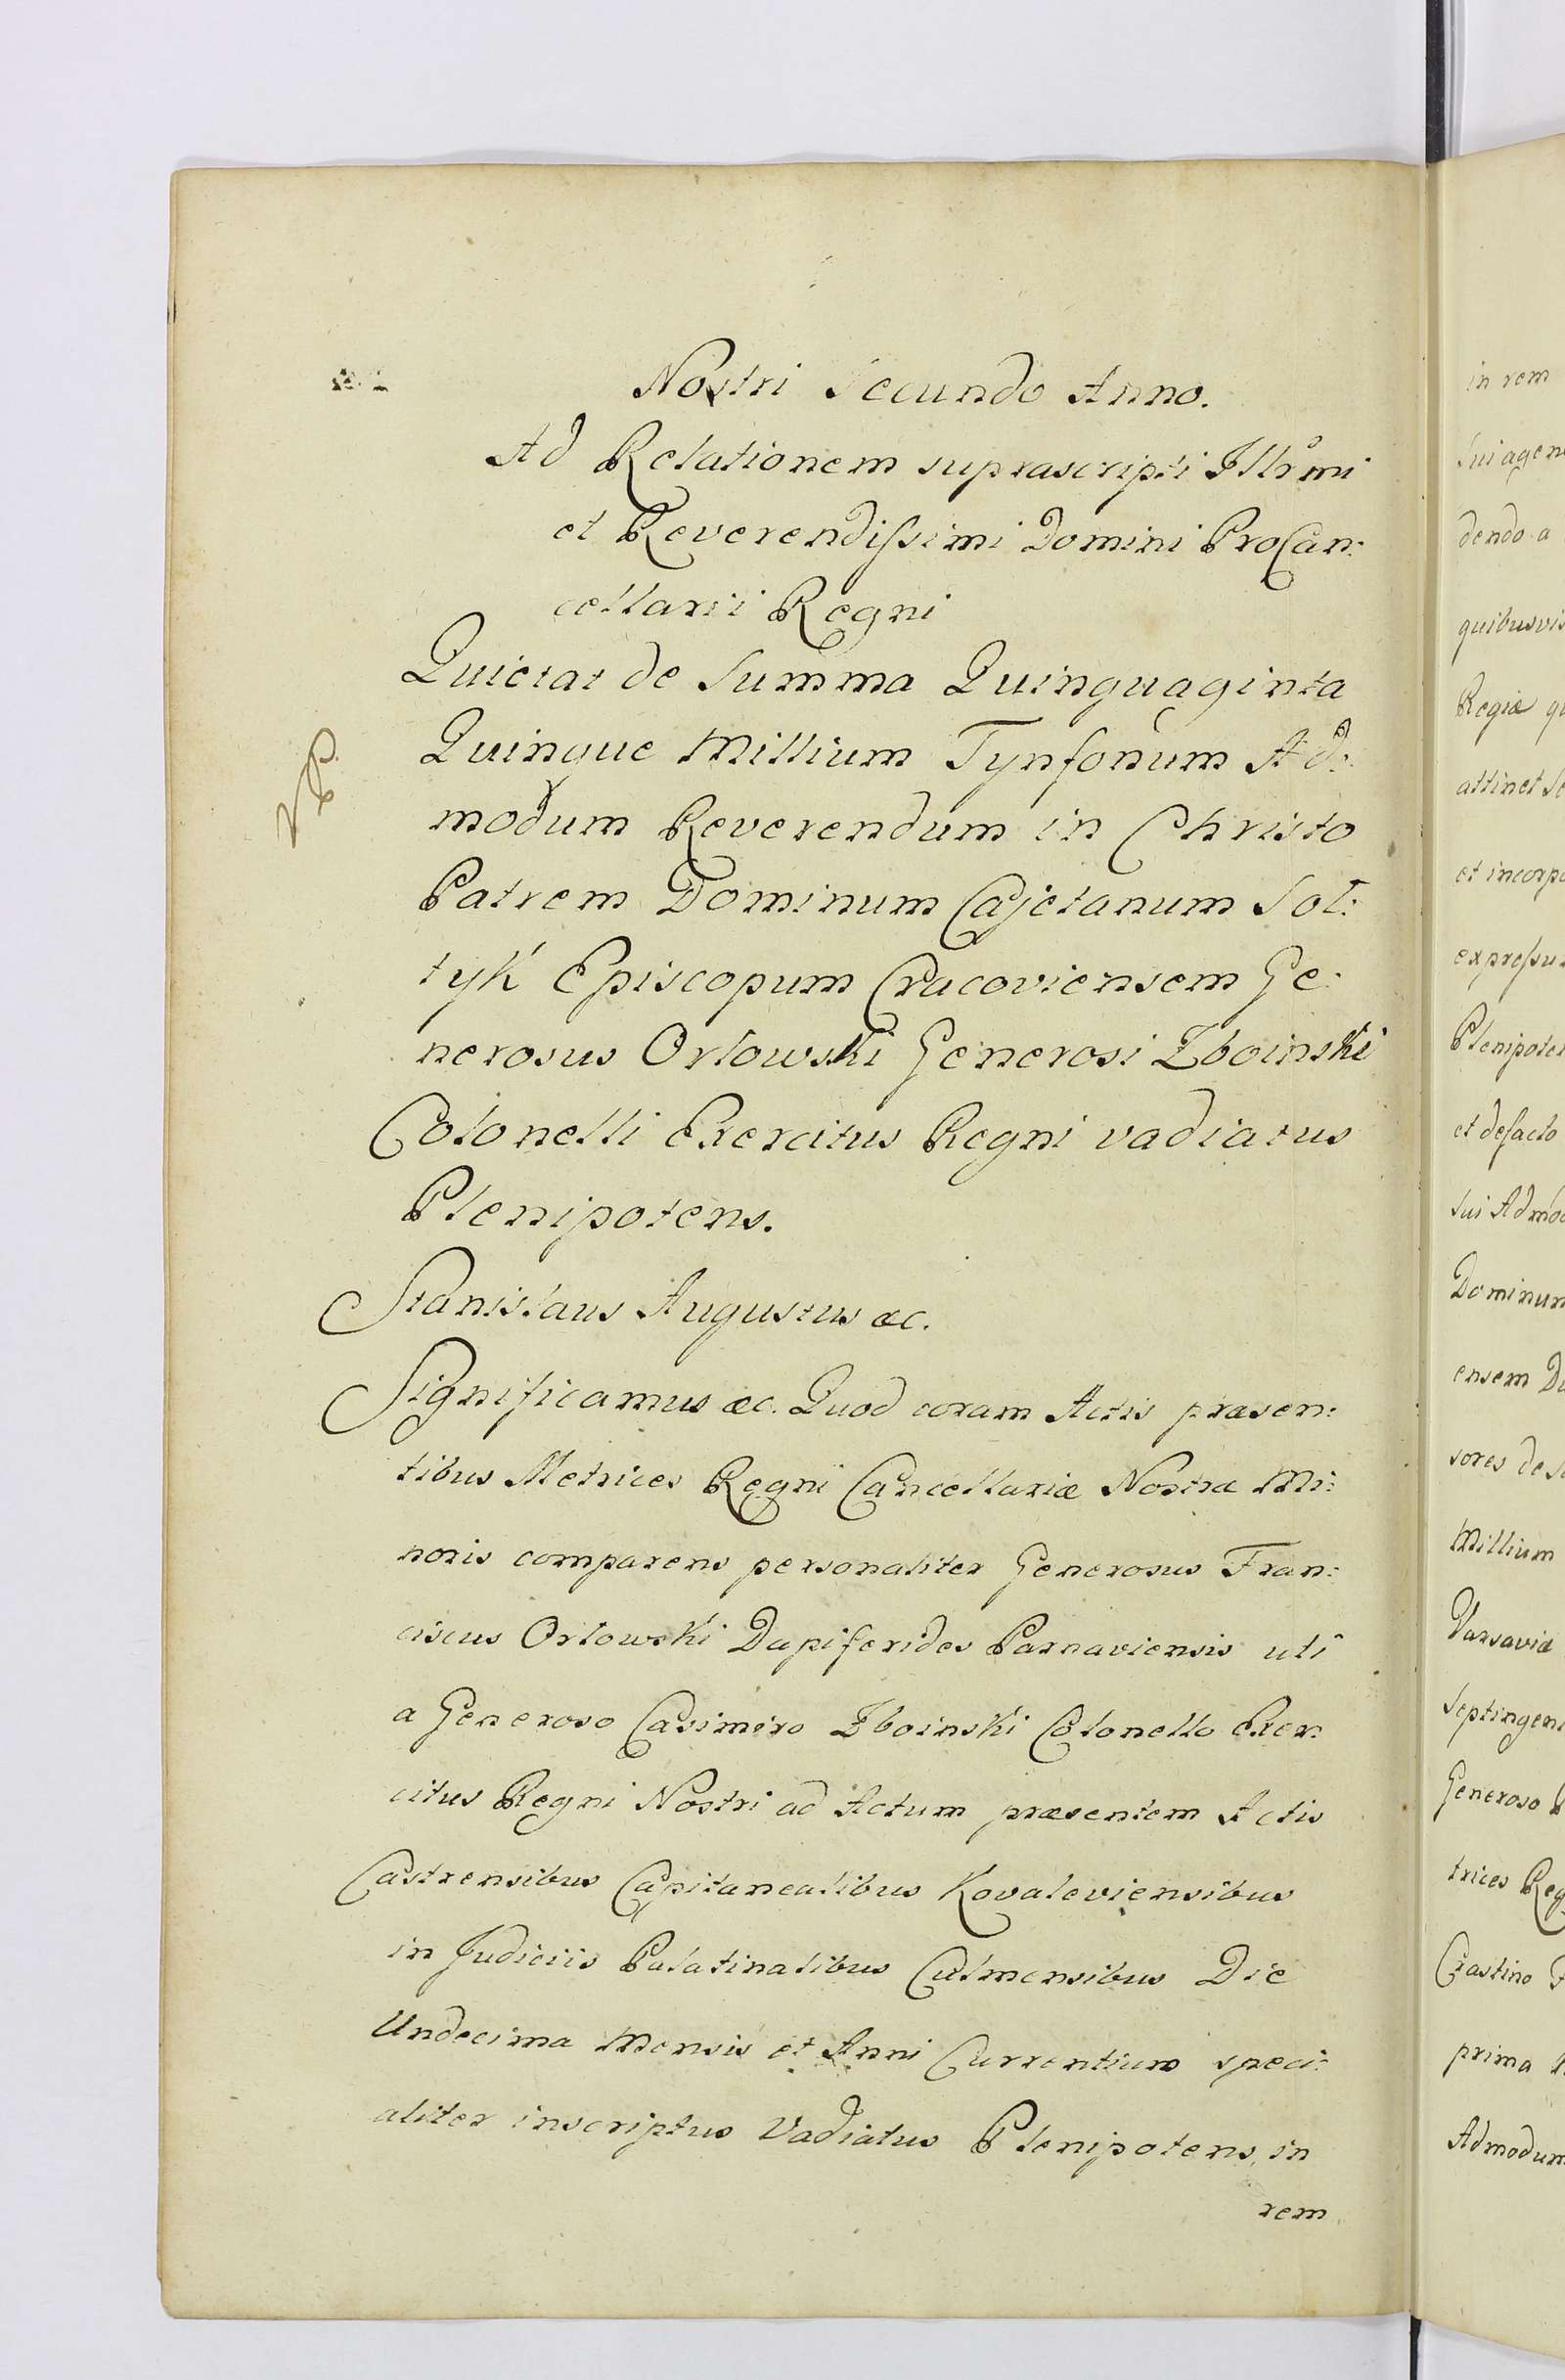 Nostri Secundo Anno.
Ad Relationem suprascripti Illr̃mi
et Reverendissimi Domini ProCan:
cellarii Regni
Quietat de Summa Quinquaginta
Quinque Millium Tynfonum Ad:
modum Reverendum in Christo
Patrem Dominum Cajetanum Sol:
tyk Episcopum Cracoviensem Ge:
nerosus Orlowski Generosi Zboinski
Colonelli Exercitus Regni vadiatus
Plenipotens.
Stanislaus Augustus &c.
Significamus &c. Quod coram Actis præsen:
tibus Metrices Regni Cancellariæ Nostræ Mi:
noris comparens personaliter Generosus Fran:
ciscus Orlowski Dapiferides Parnaviensis uti
a Generoso Casimiro Zboinski Colonello Exer:
citus Regni Nostri ad Actum præsentem Actis
Castrensibus Capitanealibus Kovaleviensibus
in Judiciis Palatinalibus Culmensibus Die
Undecima Mensis et Anni Currentium speci:
aliter inscriptus Vadiatus Plenipotens, in
rem
in rem
Sui agen
dendo a
quibusvis
Regiæ qu
attinet Se
et incorpo
expressu
Plenipoten
et defacto
sui Admod
Dominum
ensem Du
sores de S
Millium
Varsaviæ
Septingen
Generoso
trices Reg
Crastino F
prima
Admodum